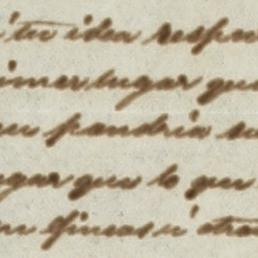 tu idea respu
imer lugar que
pondria su
ugar que lo que
lineas i otra